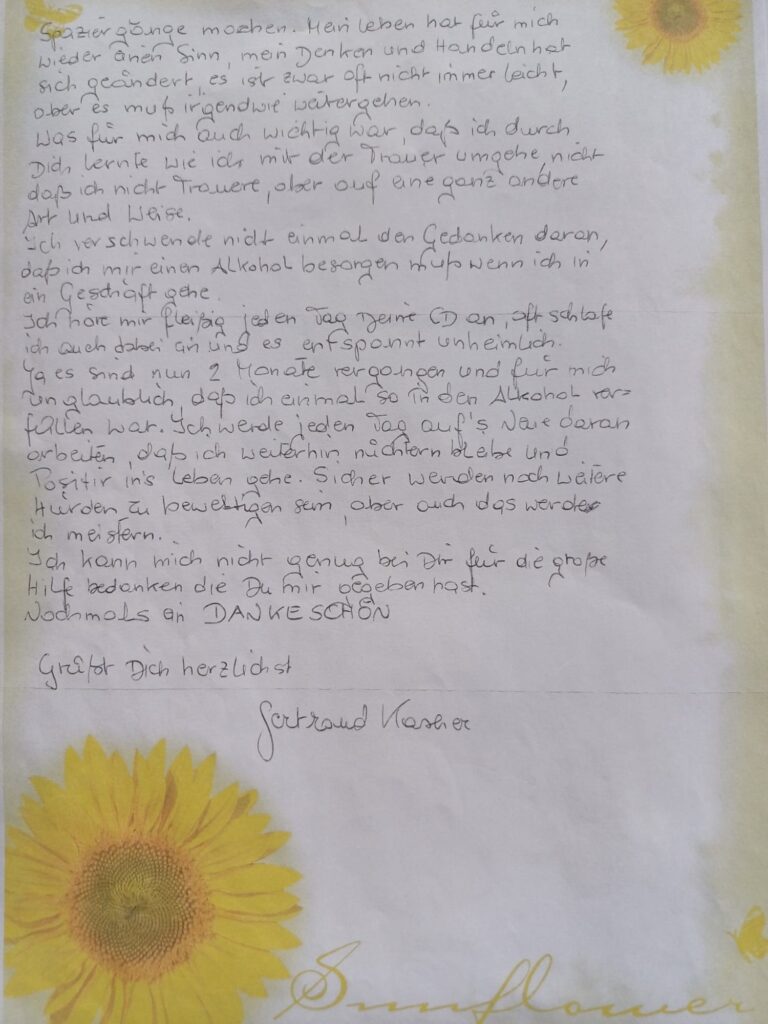 Spaziergänge machen. Mein Leben hat für mich
wieder einen Sinn, mein Denken und Handeln hat
sich geändert, es ist zwar oft nicht immer leicht,
aber es muß irgendwie weitergehen.
Was für mich auch wichtig war, daß ich durch
Dich lernte wie ich mit der Trauer umgehe, nicht
daß ich nicht Trauere, aber auf eine ganz andere
Art und Weise.
Ich verschwende nicht einmal den Gedanken daran,
daß ich mir einen Alkohol besorgen muß wenn ich in
ein Geschäft gehe.
Ich höre mir fleißig jeden Tag Deine CD an, oft schlafe
ich auch dabei ein und es entspannt unheimlich.
Ja es sind nun 2 Monate vergangen und für mich
unglaublich, daß ich einmal so in den Alkohol ver=
fallen war. Ich werde jeden Tag auf's Neue daran
arbeiten, daß ich weiterhin nüchtern bleibe und
Positiv in's Leben gehe. Sicher werden noch weitere
Hürden zu bewältigen sein, aber auch das werde
ich meistern.
Ich kann mich nicht genug bei Dir für die große
Hilfe bedanken die Du mir gegeben hast.
Nochmals ein DANKESCHÖN
Grüßt Dich herzlichst
Gertraud Kasher
Sunflower